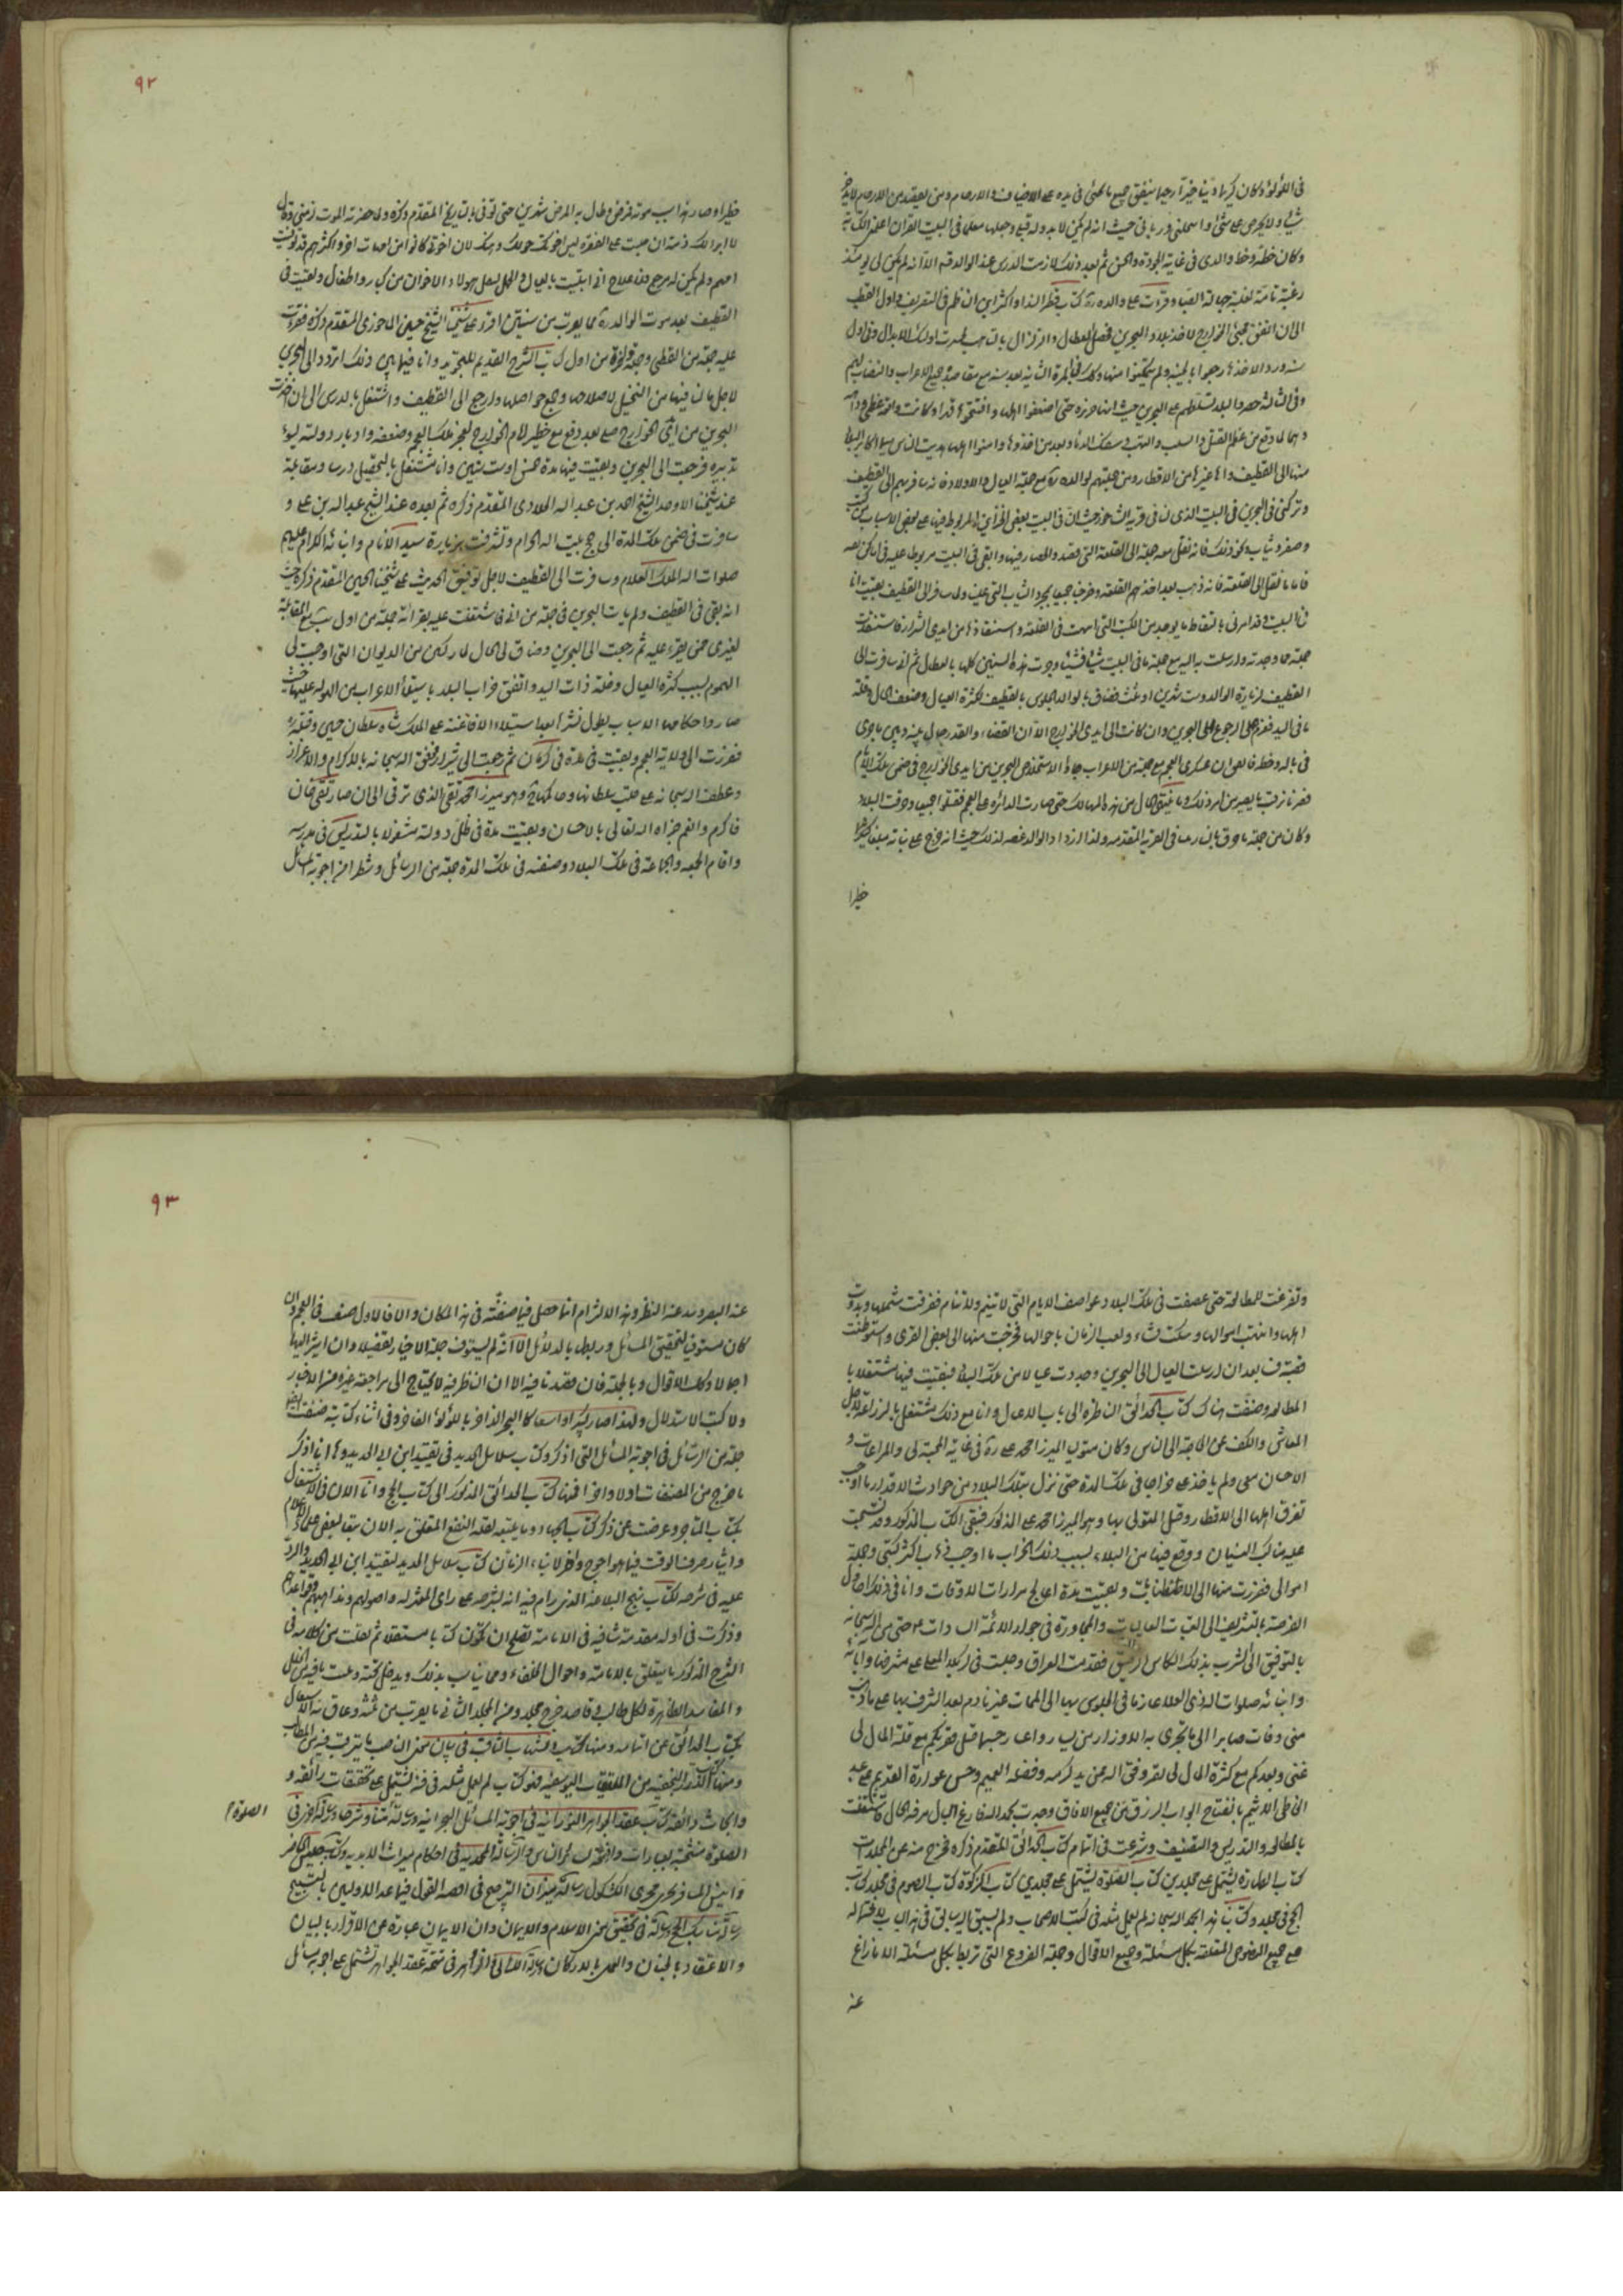 في اللؤلؤ وكان كريما دينا خيرا رحيما ينفق جميع ما يحئى في يده على الاضياف والارحام ومن يقصده من الارحام لا يدخر
شيئا ولا يحرص على شئ واستملني ورباني حيث انه لم يكن لابيه ولد قبلي وجعل معلما في البيت للقران اعلم الكتابة
وكان خطه وخط والدي في غاية الجودة والحسن ثم بعد ذلك لازمت الدرس عند الوالد قده الا انه لم يكن لي يومئذ
رغبة تامة لغلبة جهالة الصبا وقرأت على والده ره كتاب قطر الندا واكثر ابن الناظم في التصريف واول القطبي
الى ان اتفق مجيء الخوارج لاخذ بلاد البحرين فحصل العطال والزلزال بالتاهب لحرب اولئك الانذال وفي اول
سنة وردوا لاخذها رجعوا بالخيبة ولم يتمكنوا منها وكذلك في المرة الثانية بعد سنة مع معاضدة جميع الاعراب والنصاب لهم
وفي الثالثة حصروا البلد لتسلطهم على البحر حيث انها جزيرة حتى اضعفوا اهلها وافتتحوها قهرا وكانت واقعة عظمى وداهية
دهما لما وقع من عظم القتل والسلب والنهب وسفك الدماء وبعد ان اخذوها وامنوا اهلها هربت الناس سيما اكابر البلد
منها الى القطيف والى غيرها من الاقطار ومن جملتهم الوالد ره مع جملة العيال والاولاد فانه سافر بهم الى القطيف
وتركني في البحرين في البيت الذي لنا في قرية الشاخورة حيث ان في البيت بعض الخزاين المربوط فيها على بعض الاسباب من كتب
وصفر وثياب ونحو ذلك فانه نقل معه جملة الى القلعة التي قصد والحصار فيها وابقى في البيت مربوطا عليه في اماكن خفيه
فاما ما نقل الى القلعة فانه ذهب بعد اخذهم القلعة وخرجنا جميعا بمجرد الثياب التي علينا ولما سافر الى القطيف بقيت انا
في البيت وقد امرني بالتقاط ما يوجد من الكتب التي انتهبت في القلعة واستنقاذها من ايدي الشرار فاستنقذت
جملة مما وجدته وارسلت به اليه مع جملة ما في البيت شيئا فشيئا ومرت هذه السنين كلها بالعطال ثم اني سافرت الى
القطيف لزيارة الوالد وبقيت شهرين او ثلاثة فضاق بالوالد الجلوس بالقطيف لكثرة العيال وضعف الحال وقلة
ما في اليد فعزم على الرجوع الى البحرين وان كانت الى ايدي الخوارج الا ان القضاء والقدر حال بينه وبين ما جرى
في باله وخطر فاتفق ان عسكر العجم مع جملة من الاعراب جاؤا لاستخلاص البحرين من ايدي الخوارج في ضمن تلك الايام
فصرنا نرقب ما يصير من امر ذلك وما ينتهي الحال من هذه المهالك حتى صارت الدائرة على العجم فقتلوا جميعا وحرقت البلاد
وكان من جملة ما حرق بالنار بيتنا في القرية المتقدمة ولهذا ازداد الوالد غصة لذلك حيث انه خرج على بنائه مبلغا
خطيرا
٩٢
خطيرا وصار هذا سبب موته فمرض وطال به المرض شهرين حتى توفي بالتاريخ المتقدم ذكره ولما حضرته الموت الزمني وقال
لا ابرئ لك ذمة ان جلست على السفرة ليس اخوتك حولك ومعك لان اخوتي كانوا من امهات اخر واكثرهم قد توفيت
امهم ولم يكن له مرجع فلا علاج اني ابتليت بالعيال والحمل بثقل هؤلاء الاخوان من كبار واطفال وبقيت في
القطيف بعد موت الوالد ره ما يقرب من سنتين اقرء على شيخنا الشيخ حسين الماحوزي المتقدم ذكره فقرات
عليه جملة من القطبي وجملة وافرة من اول كتاب الشرح القديم للتجريد وانا فيما بين ذلك اتردد الى البحرين
لاجل ما لنا فيها من النخيل لاصلاحها وجمع حواصلها وارجع الى القطيف واشتغل بالدرس الى ان اخذت
البحرين من ايدي الخوارج صلحا بعد دفع مبلغ خطير لامام الخوارج لعجز ملك العجم وضعفه وادبار دولته بسوء
تدبيره فرجعت الى البحرين وبقيت فيها مدة خمس او ست سنين وانا مشتغل بالتحصيل درسا ومطالعة
عند شيخنا الاوحد الشيخ احمد بن عبد الله البلادي المتقدم ذكره ثم بعده عند الشيخ عبد الله بن علي و
سافرت في ضمن تلك المدة الى حج بيت الله الحرام وتشرفت بزيارة سيد الانام وابنائه الكرام عليهم
صلوات الله الملك العلام وسافرت الى القطيف لاجل توفيق الحديث على شيخنا الحسين المتقدم ذكره حيث
انه بقي في القطيف ولم يات البحرين في جملة من اتى فاشتغلت عليه بقرائة جملة من اول التهذيب مع المقابلة
لغيري ممن يقرء عليه ثم رجعت الى البحرين وضاق لي الحال لما ركبني من الديوان التي اوجبت لي
الهموم بسبب كثرة العيال وقلة ذات اليد واتفق خراب البلد باستيلاء الاعراب من الهوله عليها حتى
صاروا حكامها لاسباب يطول نشرها بعد استيلاء الافاغنة على الملك شاه سلطان حسين وقتله
ففررت الى ولاية العجم وبقيت مدة في كرمان ثم رجعت الى شيراز فوفق الله سبحانه بالاكرام والاعزاز
وعطف الله سبحانه على قلب سلطانها وحاكمها وهو ميرزا محمد تقي الذي ترقى الى ان صار تقي خان
فاكرم وانعم جزاه الله تعالى بالاحسان وبقيت مدة في ظل دولته مشغولا بالتدريس في مدرسه
واقام الجمعه والجماعة في تلك البلاد وصنفت في تلك المدة جملة من الرسائل وشطرا من اجوبة المسائل
وتفرغت للمطالعة حتى عصفت في تلك البلاد عواصف الايام التي لا تنيم ولا تنام ففرقت شملها وبددت
اهلها وانتهبت اموالها وهتكت نساءها ولعب الزمان باحوالها فخرجت منها الى بعض القرى واستوطنت
قصبة فسا بعد ان ارسلت العيال الى البحرين وجددت عيالا من تلك البلاد فبقيت فيها مشتغلا با
المطالعة وصنفت هناك كتاب الحدائق الناظره الى باب الاغسال وانا مع ذلك مشتغل بالزراعة لاجل
المعاش والكف عن الحاجة الى الناس وكان متولي الميرزا محمد علي ره في غاية المحبة لي والمراعات و
الاحسان معي ولم ياخذ علي خراجا في تلك المدة حتى نزل بتلك البلاد من حوادث الاقدار ما اوجب
تفرق اهلها الى الاقطار وقتل المتولي بها وهو الميرزا محمد علي المذكور فبقي الكتاب المذكور وقد نسجت
عليه عناكب النسيان ووقع فيها من البلاء بسبب ذلك الخراب ما اوجب ذهاب اكثر كتبي وجملة
اموالي ففررت منها الى الاصطهبانات وبقيت مدة اعالج مرارات الاوقات وانا في ذلك احاول
الفرصة بالتشريف الى العتبات العاليات والمجاورة في جوار الائمة السادات حتى من الله سبحانه
بالتوفيق الى الشرب بذلك الكاس الرحيق فقدمت العراق وجلست في كربلا المعلى على مشرفها وابائه
وابنائه صلوات الله ذي العلا عازما في الجلوس بها الى الممات غير نادم بعد التشرف بها على ما ذهب
مني وفات صابرا الى ما يجري به الاوزار من ايسار واعسار حسبما قيل فقربكم مع قلة المال لي
غنى وبعدكم مع كثرة المال لي فقر ووفق الله عن يد كرمه وفضله العميم وحسن عوارة القديم على عبده
الخاطي الاثيم بانفتاح ابواب الرزق من جميع الافاق وصرت بحمد الله فارغ البال مرفه الحال فاشتغلت
بالمطالعة والتدريس والتصنيف وشرعت في اتمام كتاب الحدائق المتقدم ذكره فخرج منه من المجلدات
كتاب الطهارة يشتمل على مجلدين كتاب الصلوة يشتمل على مجلدين كتاب الزكوة كتاب الصوم في مجلد كتاب
الحج في مجلد وكتابنا هذا بحمد الله سبحانه لم يعمل مثله في كتب الاصحاب ولم يسبق اليه سابق في هذا الباب لاشتماله
على جميع النصوص المتعلقة بكل مسئلة وجميع الاقوال وجملة الفروع التي تربط بكل مسئلة الا ما زاغ
عنه
٩٣
عنه البصر وحد عنه النظر وهذا الالتزام انما حصل فيما صنفته في هذا المكان والا فالاول صنف في العجم وان
كان مستوفيا لتحقيق المسائل وربطها بالدلائل الا انه لم يستوف جملة الاخبار تفصيلا وان اشير اليها
اجمالا وكذلك الاقوال وبالجملة فان قصدنا فيه الى ان الناظر فيه لا يحتاج الى مراجعة غيره من الاخبار
ولا كتب الاستدلال ولهذا صار كبيرا واسعا كالبحر الزاخر باللؤلؤ الفاخر وفي اثناء كتابته صنفت ايضا
جملة من الرسائل في اجوبة المسائل التي اذكر وكتاب سلاسل الحديد في تقييد ابن ابي الحديد وها انا اذكر
ما خرج من المصنفات اولا واخرا فمنها كتاب الحدائق المذكور الى كتاب الحج وانا الان في الاشتغال
بكتاب المتاجر وعرضت عن ذكر كتاب الجهاد وما يتبعه لقلة النفع المتعلق به الان تبعا لبعض علمائنا الاعلام
وايثار صرف الوقت فيما هو احوج واحق لابناء الزمان كتاب سلاسل الحديد لتقييد ابن ابي الحديد والرد
عليه في شرحه لكتاب نهج البلاغة الذي رام فيه انه يشرحه على راي المعتزلة واصولهم ومذاهبهم وقواعدهم
وذكرت في اوله مقدمة شافية في الامامة تصلح ان تكون كتابا مستقلا ثم نقلت من كلامه في
الشرح المذكور ما يتعلق بالامامة واحوال الخلفاء وما يناسب بذلك ويدخل تحته وبينت ما فيه من الخلل
والمفاسد الظاهرة لكل طالب وقاصد خرج مجلد ومن المجلد الثاني ما يقرب من ثلثه وعاق الاشتغال
بكتاب الحدائق عن اتمامه ومنها كتاب الشهاب الثاقب في بيان معنى الناصب وما يترتب فيه من المطالب
ومنها كتاب الدرر النجفيه من الملتقطات اليوسفيه فهو كتاب لم يعمل مثله في فنه يشتمل على تحقيقات رائقه و
وابحاث فائقه كتاب عقد الجواهر النورانيه في اجوبة المسائل البحرانيه ورسالة الصلوة متنا وشرحا ورسالة اخرى في
الصلوة ٢
الصلوة منتخبة بعبارات واضحه لعوام الناس والرسالة المحمديه في احكام ميراث الابديه وكتاب جليس الحاضر
وانيس المسافر يجري مجرى الكشكول رسالة ميزان الترجيح في افضلية القول فيما عدا الاوليين بالتسبيح
رسالة مناسك الحج رسالة في تحقيق معنى الاسلام والايمان وان الايمان عبارة عن الاقرار باللسان
والاعتقاد بالجنان والعمل بالاركان رسالة اللئالي الزواهر في تتمة عقد الجواهر تشتمل على اجوبة مسائل